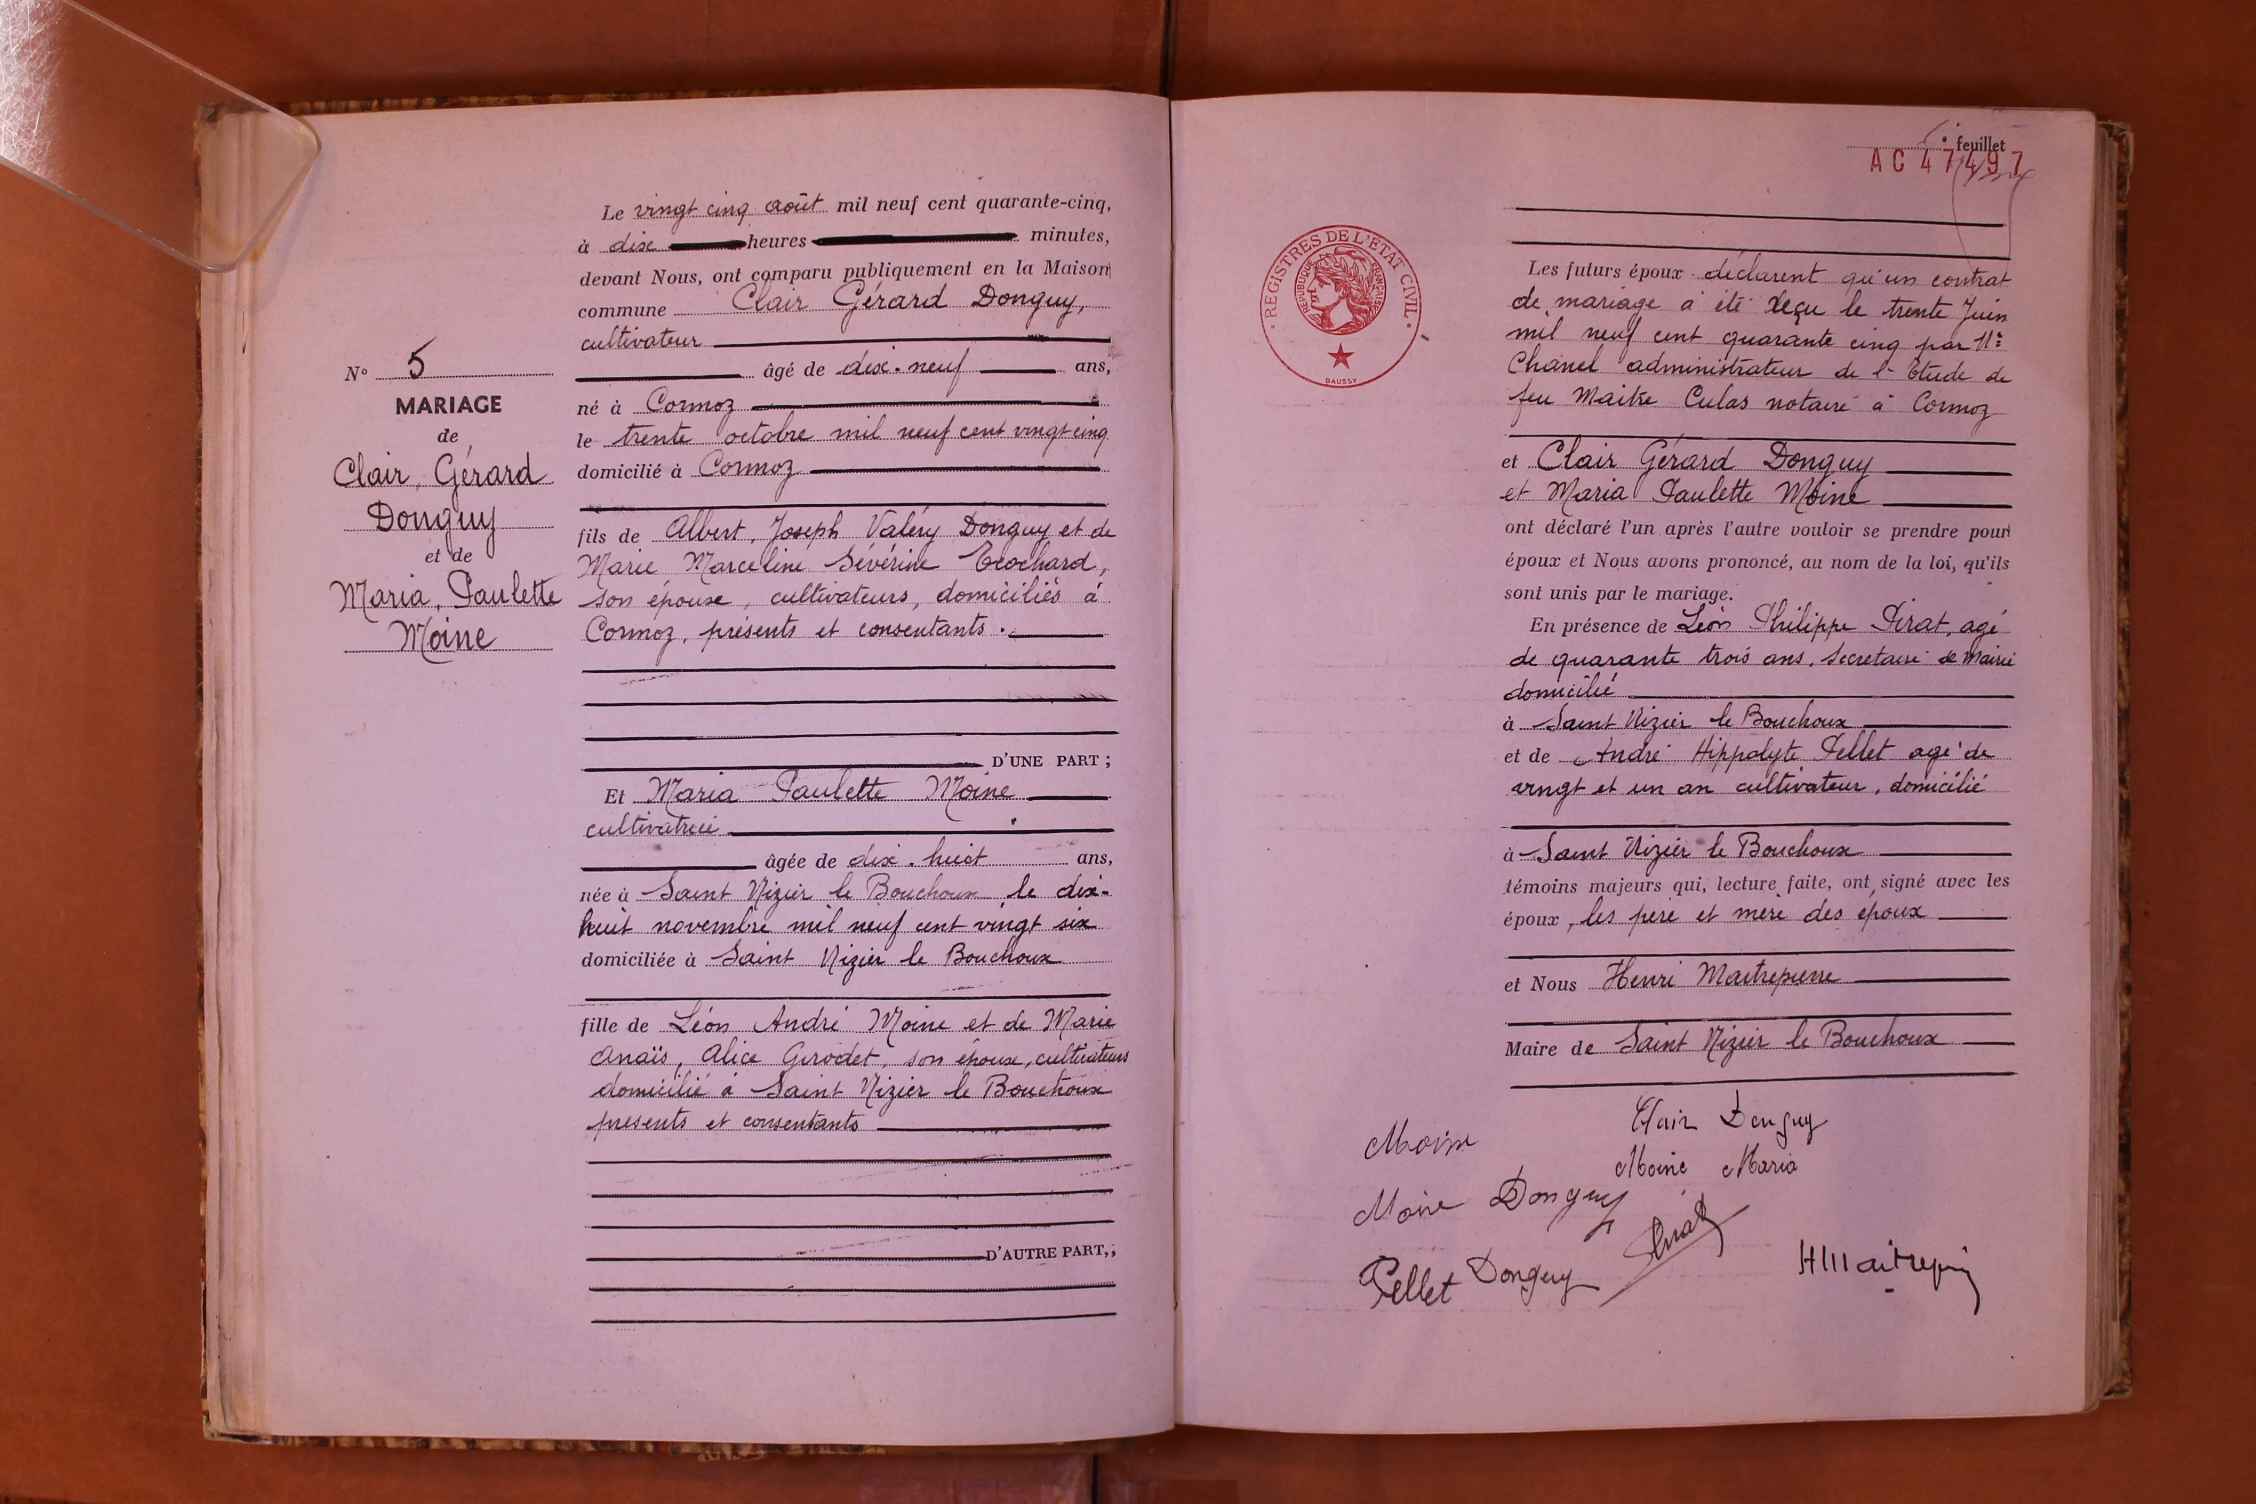 N° 5
MARIAGE
de
Clair, Gérard
Donguy
et de
Maria, Paulette
Moine
Le vingt cinq août mil neuf cent quarante-cinq,
à dix heures minutes,
devant Nous, ont comparu publiquement en la Maison
commune Clair Gérard Donguy,
cultivateur
âgé de dix-neuf ans,
né à Cormoz
le trente octobre mil neuf cent vingt cinq
domicilié à Cormoz
fils de Albert, Joseph Valéry Donguy et de
Marie Marceline Sévérine Trochard,
son épouse, cultivateurs, domiciliés à
Cormoz, présents et consentants.
D'UNE PART ;
Et Maria Paulette Moine
cultivatrice
âgée de dix-huit ans,
née à Saint Nizier le Bouchoux le dix-
huit novembre mil neuf cent vingt six
domiciliée à Saint Nizier le Bouchoux
fille de Léon André Moine et de Marie
Anaïs, Alice Girodet, son épouse, cultivateurs
domicilié à Saint Nizier le Bouchoux
présents et consentants
D'AUTRE PART,;
feuillet
AC 47497
REGISTRES DE L'ETAT CIVIL
REPUBLIQUE FRANÇAISE
DAUSSY
Les futurs époux déclarent qu'un contrat
de mariage a été reçu le trente Juin
mil neuf cent quarante cinq par Me
Chanel administrateur de l'Etude de
feu Maitre Culas notaire à Cormoz
et Clair Gérard Donguy
et Maria Paulette Moine
ont déclaré l'un après l'autre vouloir se prendre pour
époux et Nous avons prononcé, au nom de la loi, qu'ils
sont unis par le mariage.
En présence de Léon Philippe Pirat, agé
de quarante trois ans, secretaire de Mairie
domicilié
à Saint Nizier le Bouchoux
et de André Hippolyte Pellet agé de
vingt et un an cultivateur, domicilié
à Saint Nizier le Bouchoux
témoins majeurs qui, lecture faite, ont signé avec les
époux, les père et mère des époux
et Nous Henri Maitrepierre
Maire de Saint Nizier le Bouchoux
Clair Donguy
Moine
Moine Maria
Moine Donguy
Pirat
Pellet Donguy